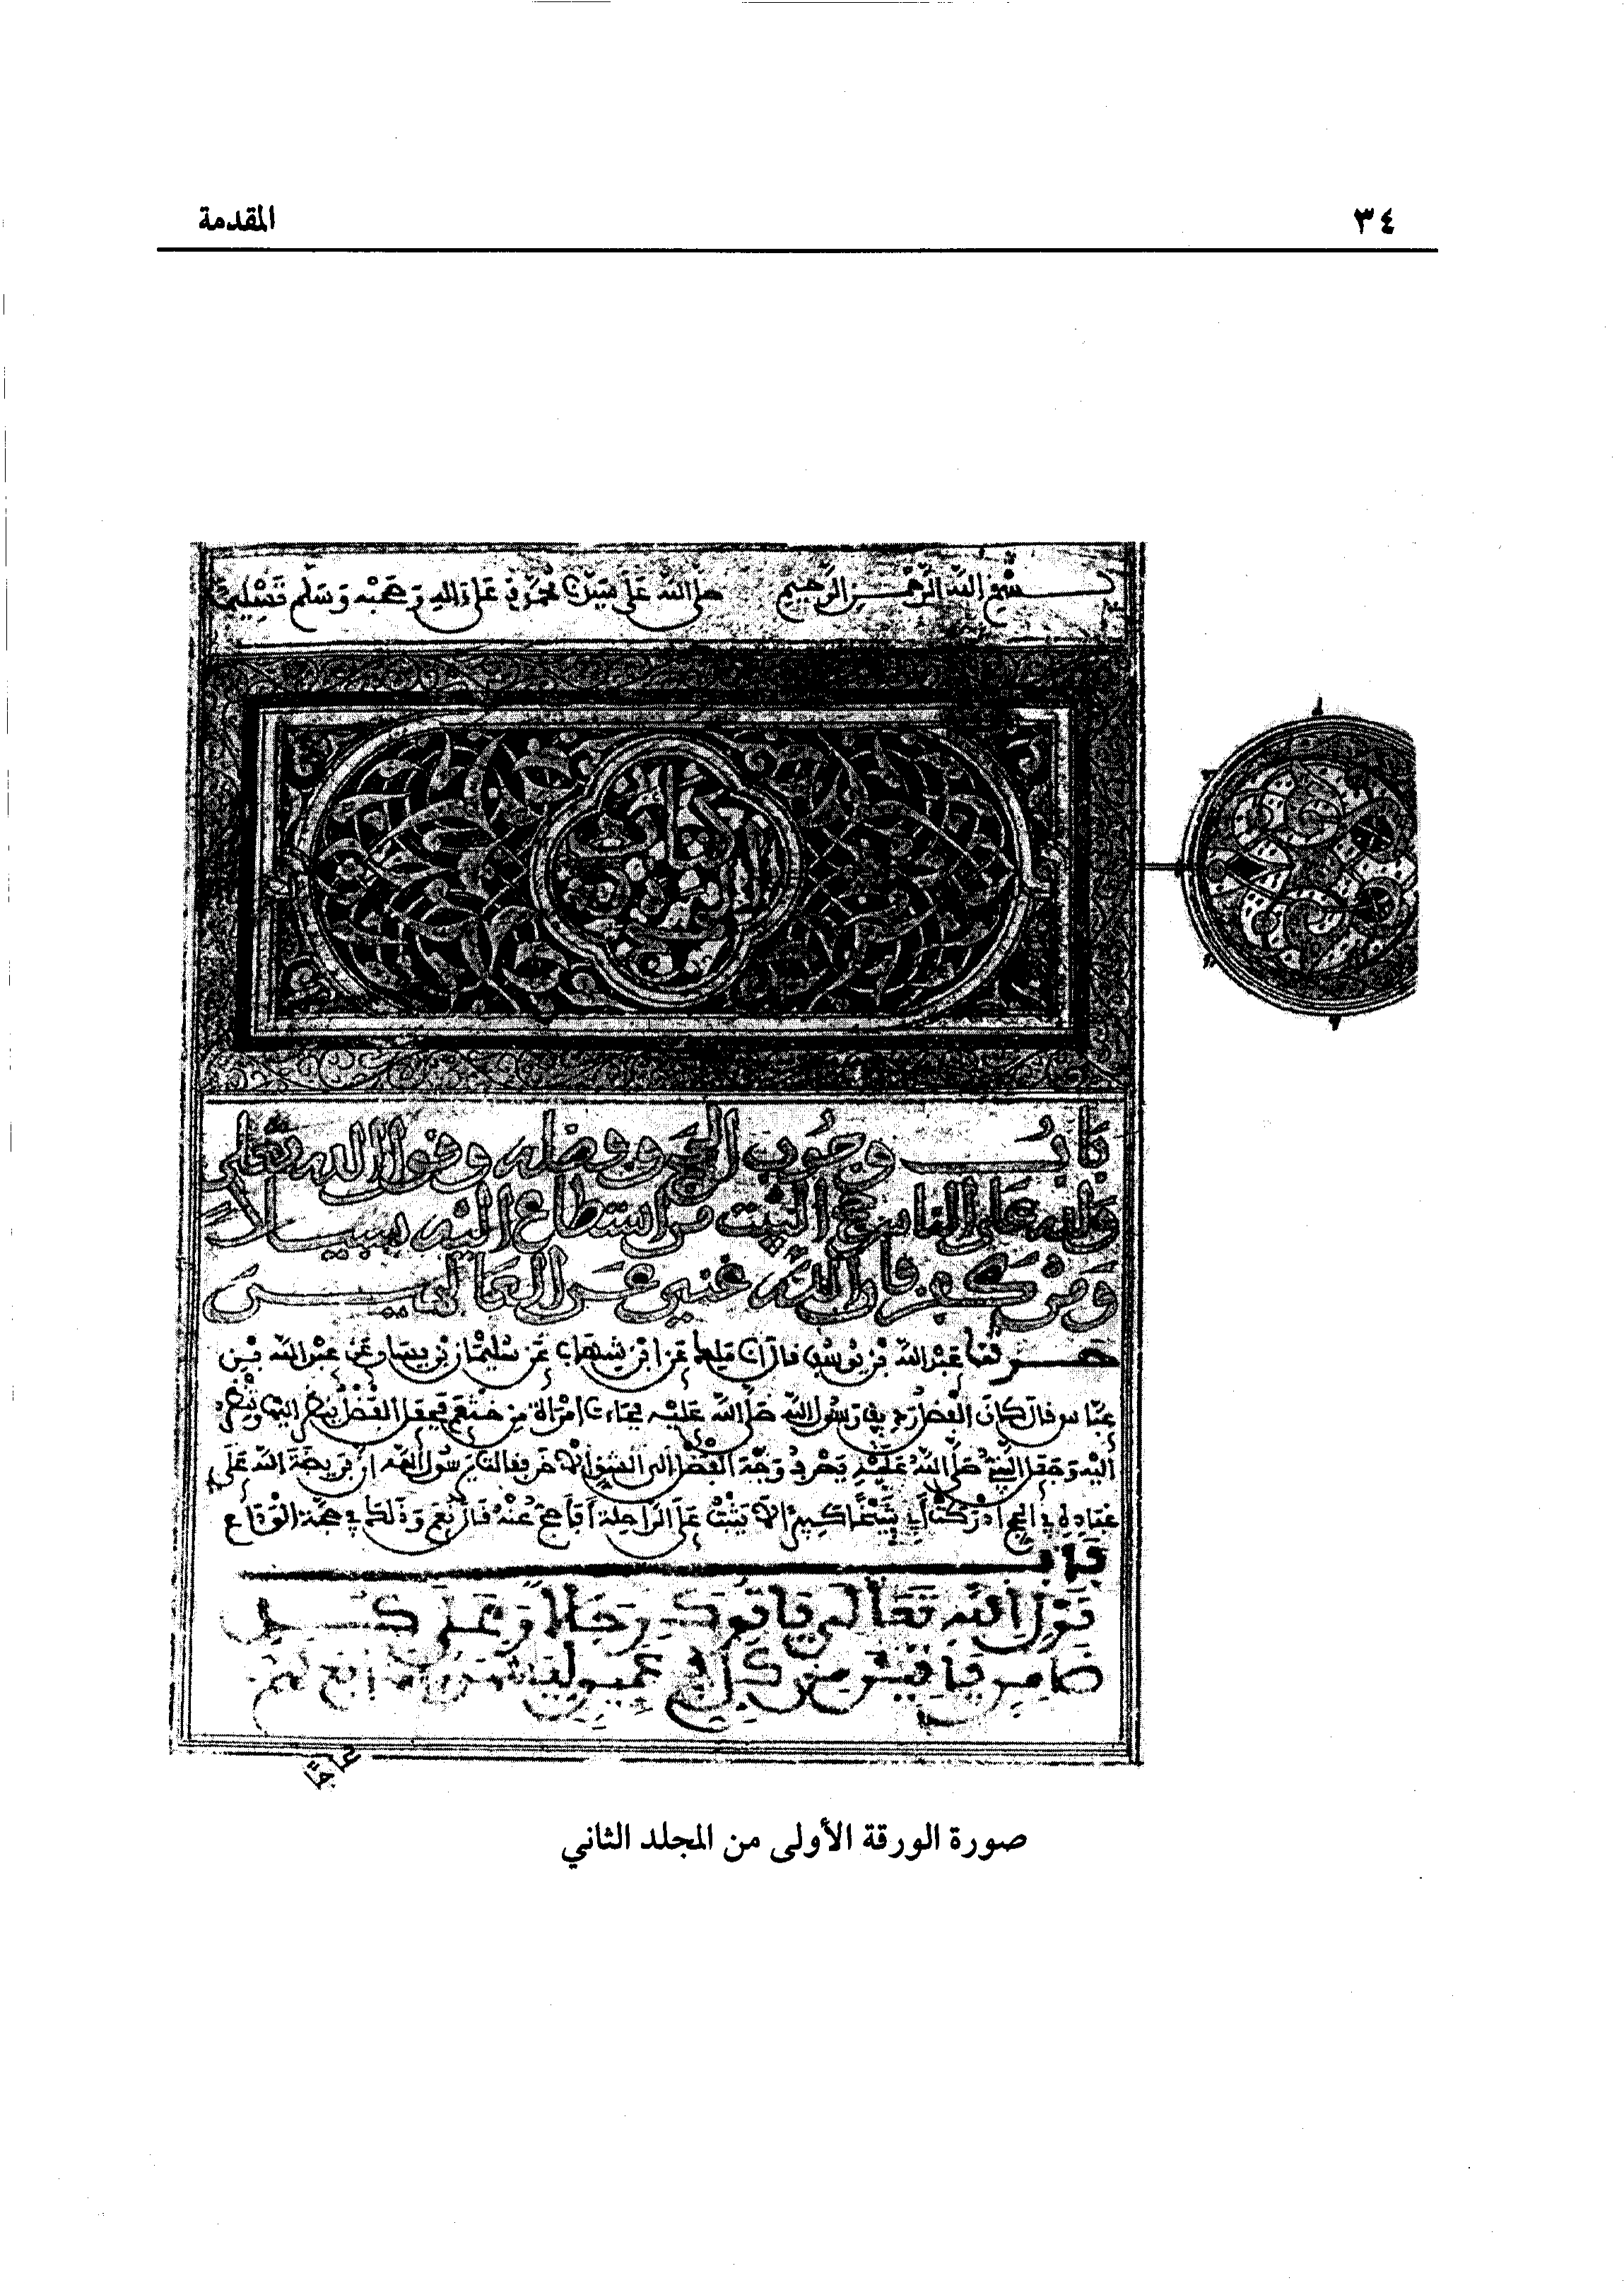 ٣٤
المقدمة
بسم الله الرحمن الرحيم صلى الله على سيدنا محمد وعلى ءاله وصحبه وسلم تسليما
كتاب الحج
باب وجوب الحج وفضله وقول الله تعلى
ولله على الناس حج البيت من استطاع اليه سبيلا
ومن كفر فإن الله غني عن العالمين
حدثنا عبد الله بن يوسف قال انا ملك عن ابن شهاب عن سليمان بن يسار عن عبد الله بن
عباس قال كان الفضل رديف رسول الله صلى الله عليه فجاءت امرأة من خثعم فجعل الفضل ينظر اليها وتنظر
اليه وجعل النبي صلى الله عليه يصرف وجه الفضل الى الشق الاخر فقالت يرسول الله ان فريضة الله على
عباده في الحج ادركت ابي شيخا كبيرا لا يثبت على الراحلة أفأحج عنه قال نعم وذلك في حجة الوداع
باب
قول الله تعالى ياتوك رجالا وعلى كل
ضامر ياتين من كل فج عميق ليشهدوا منافع لهم
صورة الورقة الأولى من المجلد الثاني